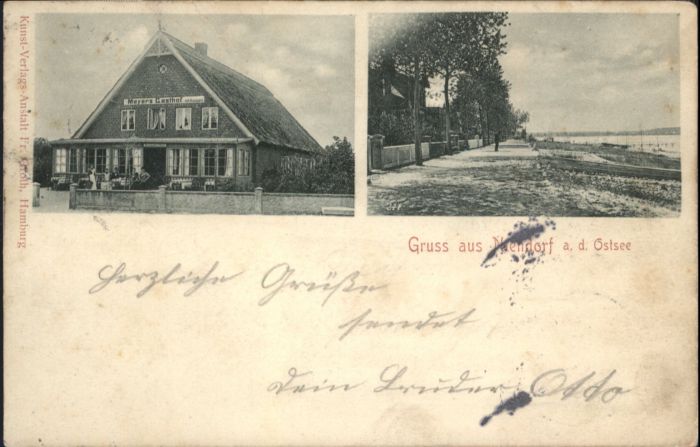 Kunst-Verlags-Anstalt Fr. Groth, Hamburg
Meyers Gasthof
Gruss aus Niendorf a. d. Ostsee
Herzliche Grüße
sendet
Dein Bruder Otto